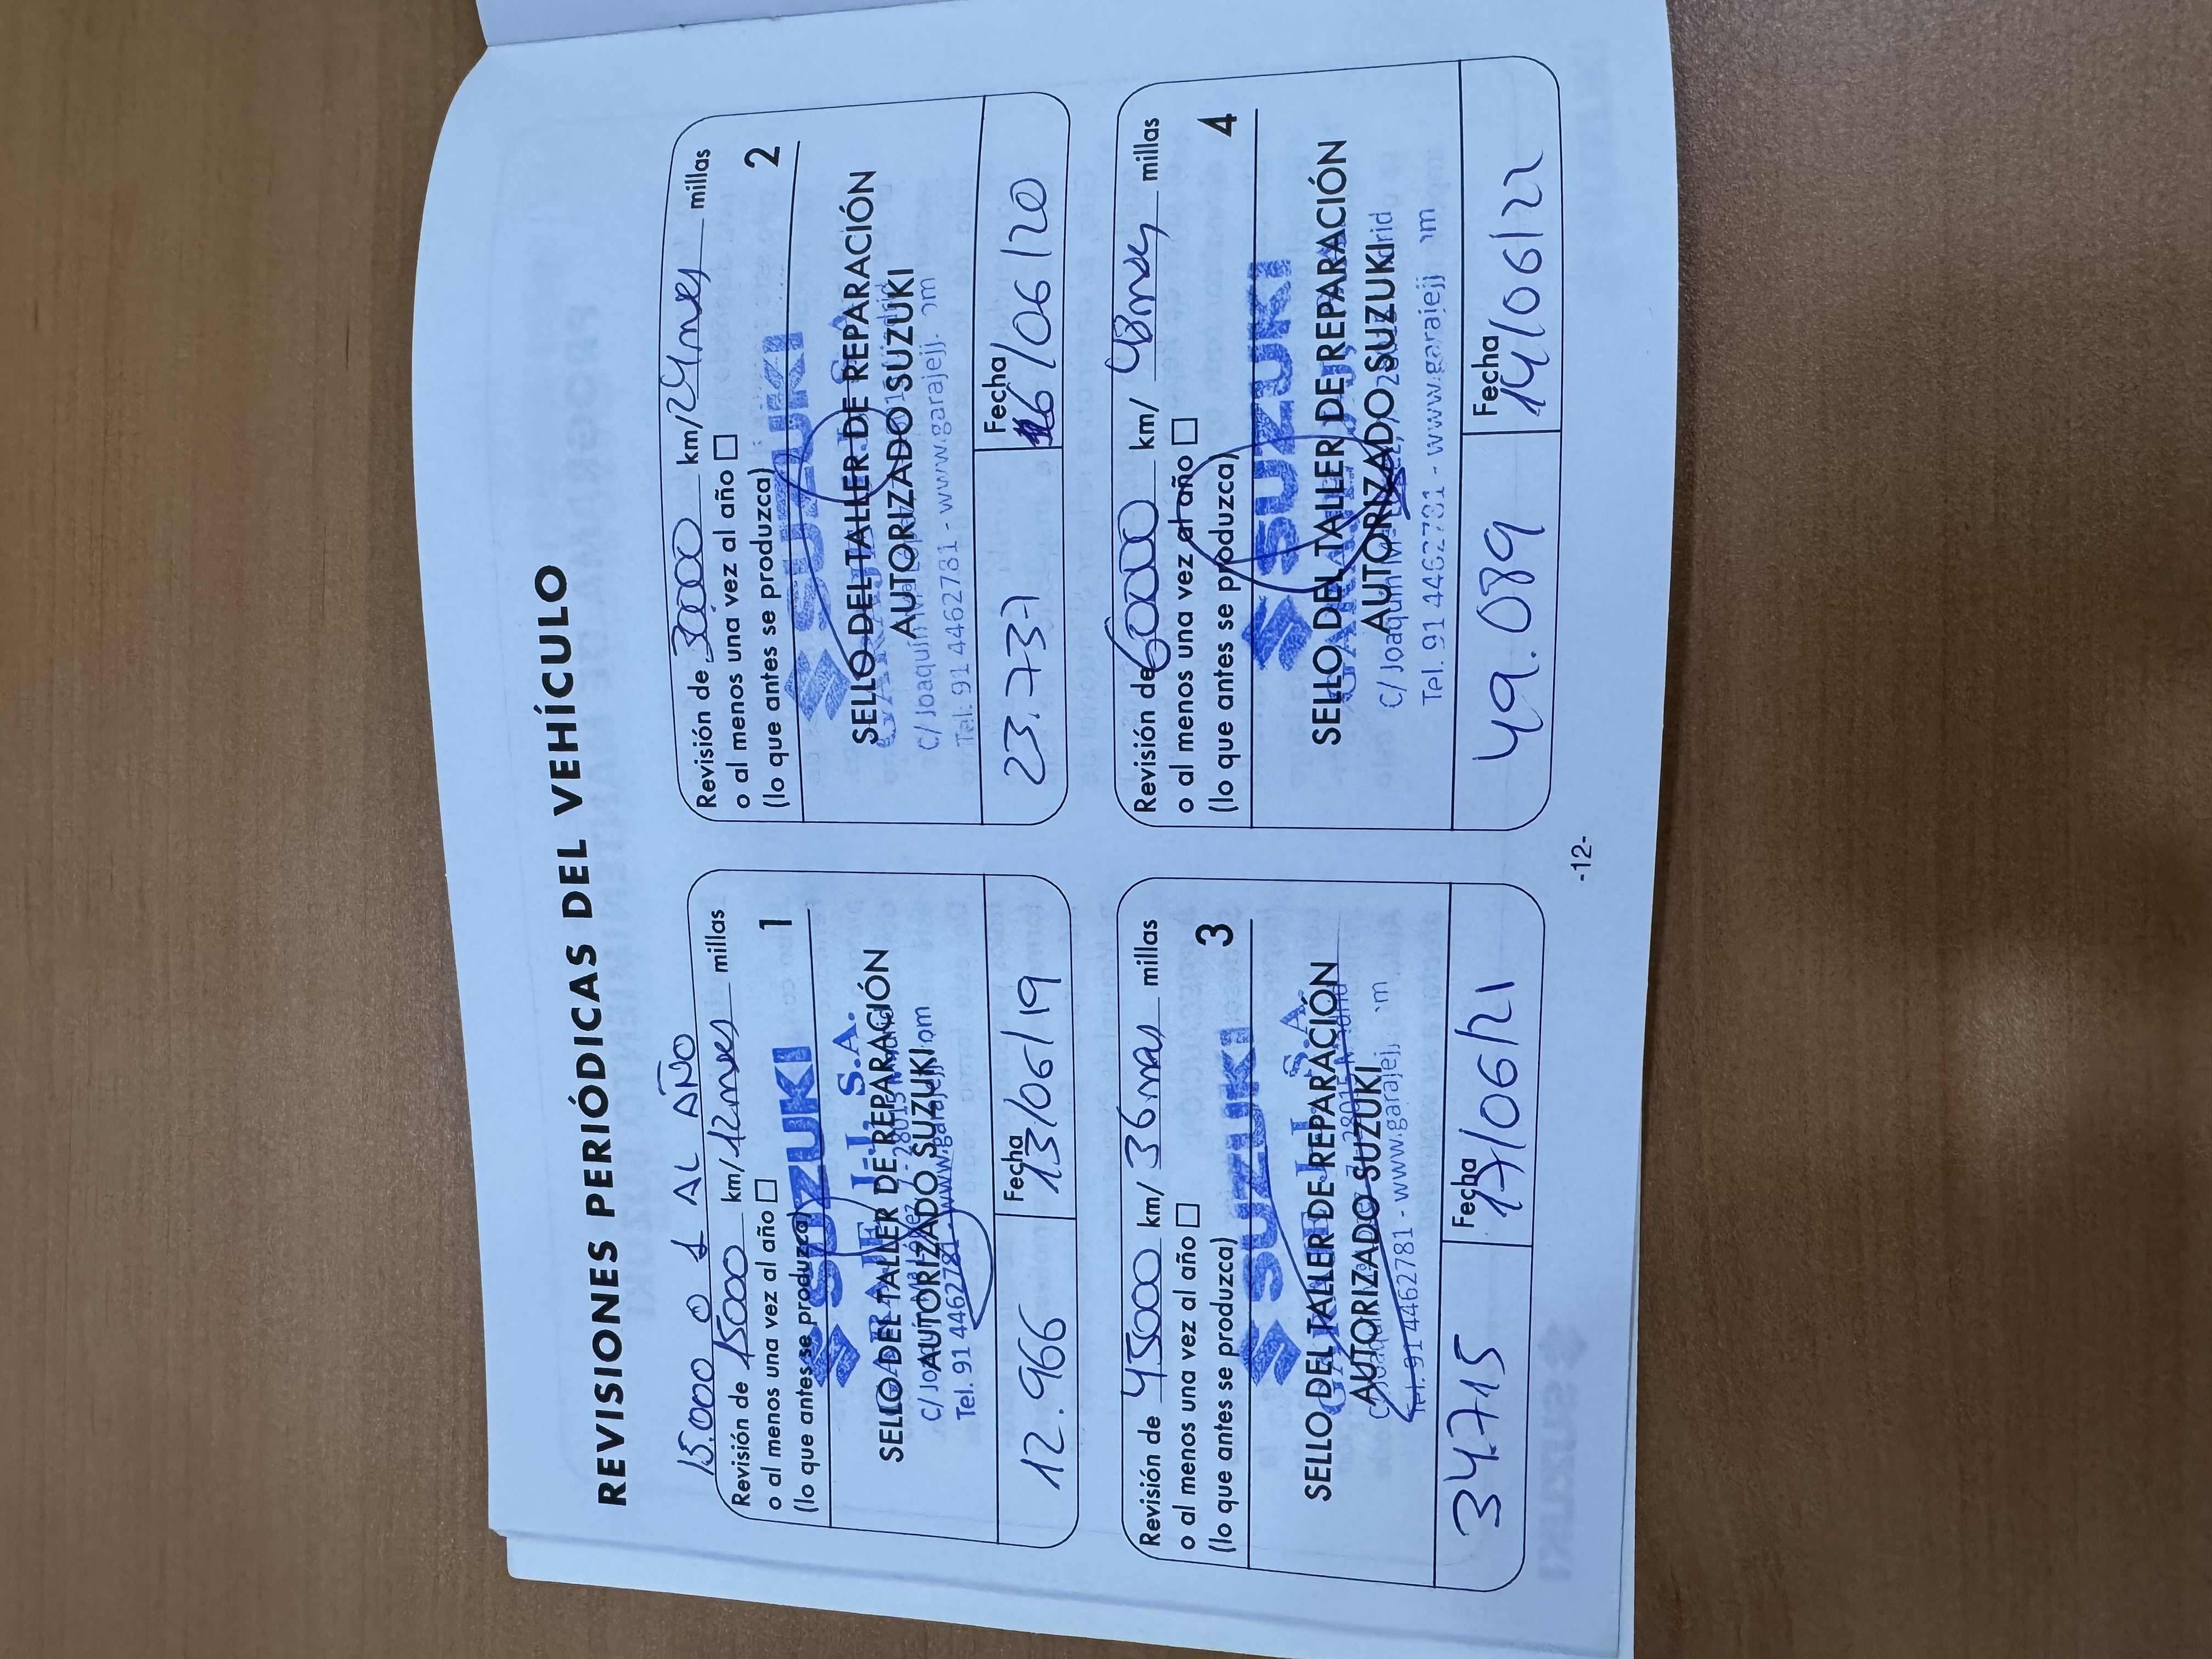 REVISIONES PERIÓDICAS DEL VEHÍCULO
15.000 O 1 AL AÑO
Revisión de 15000 km/ 12 meses millas
o al menos una vez al año
(lo que antes se produzca) 1
SUZUKI
GARAJE J.J. S.A.
SELLO DEL TALLER DE REPARACIÓN
AUTORIZADO SUZUKI
C/ Joaquín Mª López 28015
Tel. 91 4462781 - www.garajejj.com
12.966
Fecha
13/06/19
Revisión de 30000 km/ 24 meses millas
o al menos una vez al año
(lo que antes se produzca) 2
SUZUKI
SELLO DEL TALLER DE REPARACIÓN
AUTORIZADO SUZUKI
C/ Joaquín
Tel. 91 4462781 - www.garajejj. om
23.737
Fecha
16/06/20
Revisión de 45000 km/ 36 meses millas
o al menos una vez al año
(lo que antes se produzca) 3
SUZUKI
GARAJE J.J. S.A.
SELLO DEL TALLER DE REPARACIÓN
AUTORIZADO SUZUKI
C/ Joaquín 28015
Tel. 91 4462781 - www.garajejj. m
34.715
Fecha
17/06/21
Revisión de 60000 km/ 48 meses millas
o al menos una vez al año
(lo que antes se produzca) 4
SUZUKI
GARAJE
SELLO DEL TALLER DE REPARACIÓN
AUTORIZADO SUZUKI
C/ Joaquín Mª rid
Tel. 91 4462781 - www.garajejj m
49.089
Fecha
14/06/22
-12-